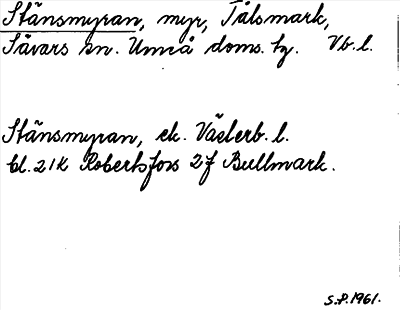 Stänsmyran, myr, Tålsmark,
Sävars sn. Umeå doms. hg. Vb. l.
Stänsmyran, ek. Västerb. l.
bl. 21K Robertsfors 2f Bullmark.
S.P. 1961.